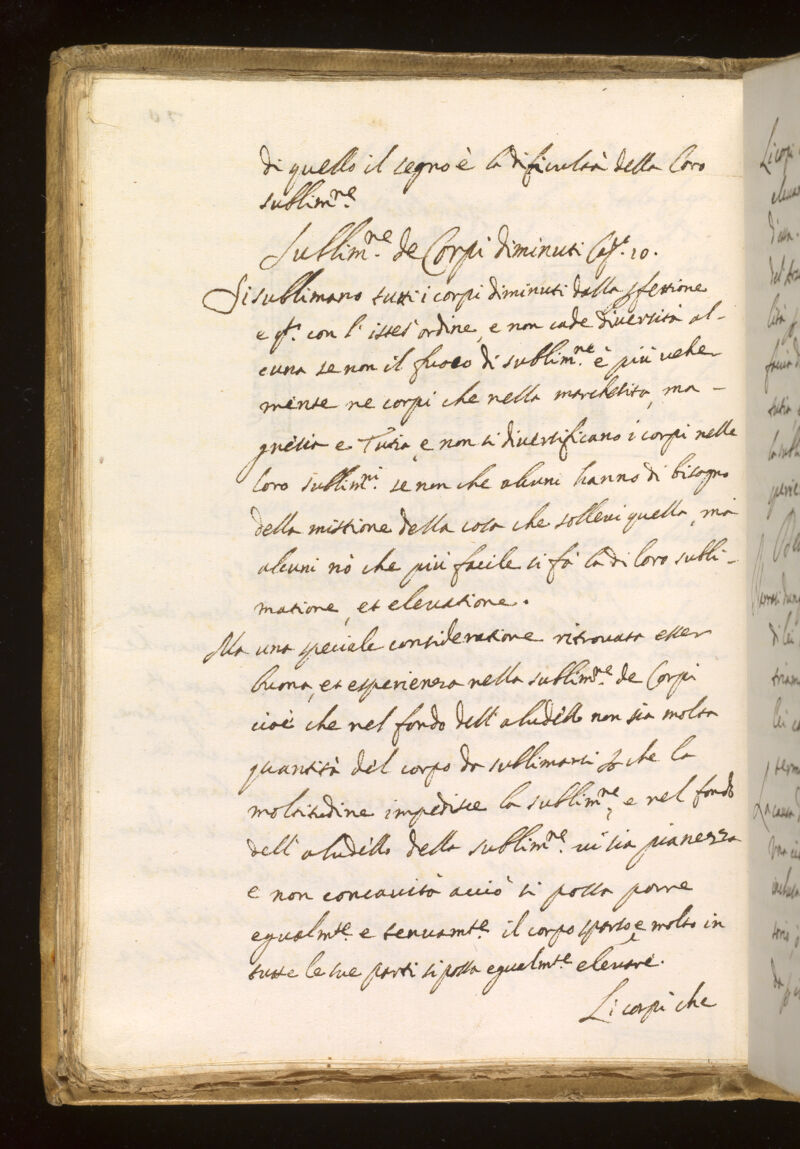 di quello il segno è la dificultà della loro
sublim.ne
Sublim.ne de Corpi diminuti Cap. 10.
Si sublimano tutti i corpi diminuti dalla pfettione
e q.to con l'istes' ordine, e non cade diversità al-
cuna se non il fuoco di sublim.ne è più vehe
mente ne corpi che nella marchesita, ma-
gnesia e Tutia, e non si diversificano i corpi nelle
loro sublim.ni se non che alcuni hanno di bisogno
della mistione della cosa che sollevi quella, mà
alcuni nò che più facile si fà la di loro subli-
matione, et elevatione.
Ma una speciale consideratione ritrovata esser
buona, et esperienza nella sublim.ne de Corpi
cioè che nel fondo dell'aludello non sia molta
quantità del corpo da sublimarsi che la
moltitudine impedisce la sublim.ne, e nel fondo
dell'aludello della sublim.ne vi sia pianezza
e non concavità acciò si possa porre
egualm.te e tenuam.te il corpo sparso e molto in
tutte le sue parti si possa egualm.te elevare.
Li corpi che
70